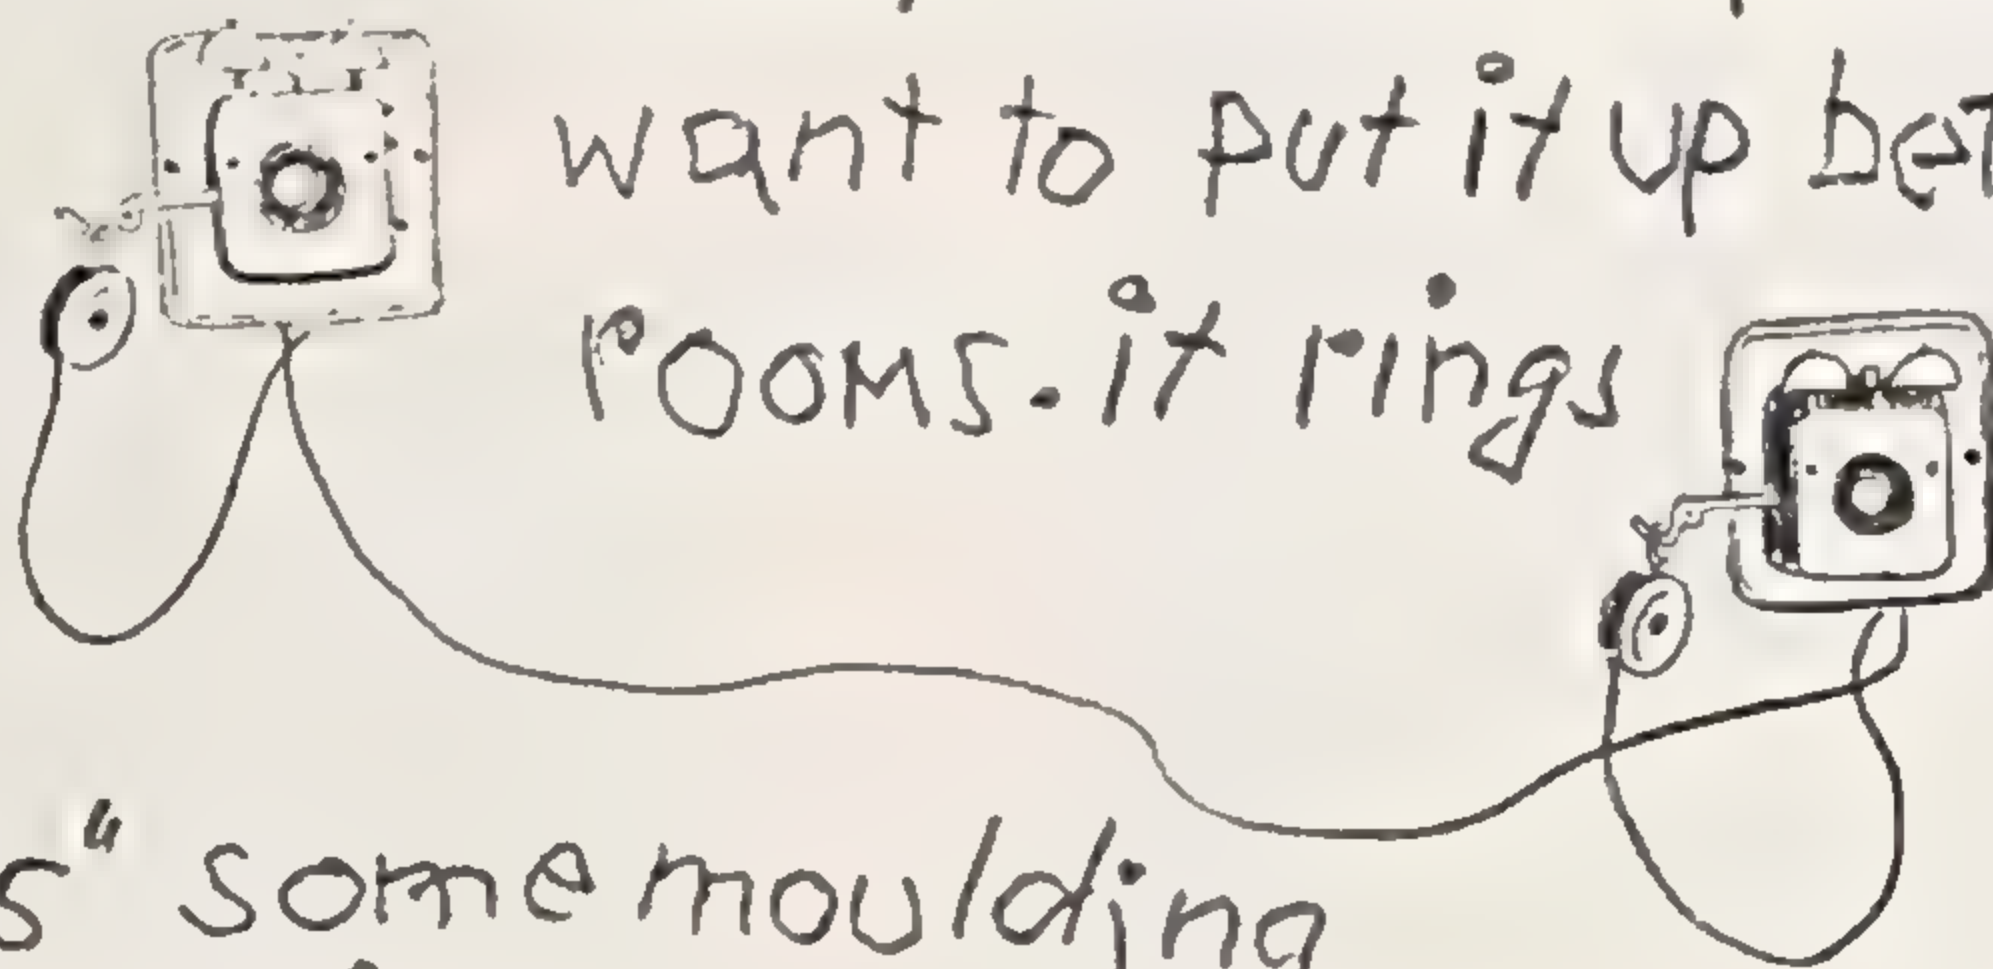 want to put it up bet
rooms. it rings
s" some moulding